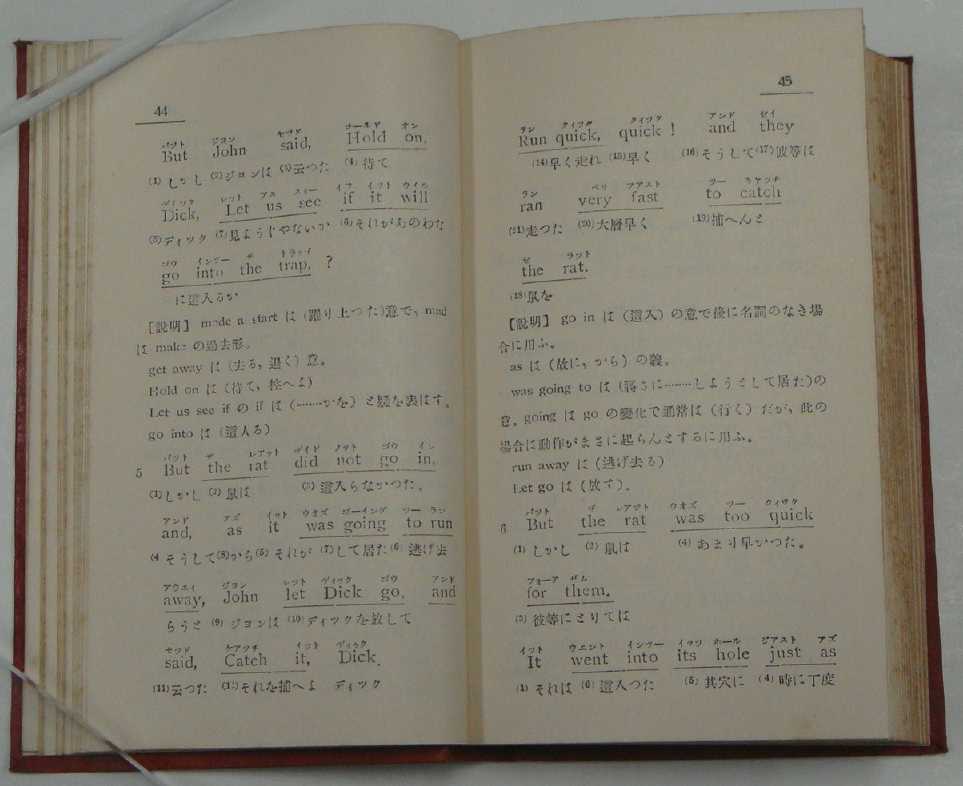 44
バット ジヨン セツド ホールド オン
But John said, Hold on,
(1) しかし (2) ジヨンは (3) 云つた (4) 待て
ディック レット アス スィー イフ イット ウイル
Dick, Let us see if it will
(5) ディツク (7) 見ようぢやないか (6) それが
ゴウ インツー ザ トラップ
go into the trap, ?
に這入るか
[説明] made a start は (躍り上つた) 意で, mad
は make の過去形.
get away は (去る, 退く) 意.
Hold on は (待て, 
Let us see if の if は (……かを) と疑を表はす.
go into は (這入る)
バット ザ レアット ディド ノット ゴウ イン
5 But the rat did not go in,
(1) しかし (2) 鼠は (3) 這入らなかつた.
アンド アズ イット ウオズ ゴーイング ツー ラン
and, as it was going to run
(4 そうして (8) から (5) それが (7) して居た (6) 逃げ去
アウエイ ジヨン レット ディック ゴウ アンド
away, John let Dick go, and
らうと (9) ジヨンは (10) ディツクを放して
セッド ケアツチ イット ディック
said, Catch it, Dick.
(11) 云つた (12) それを捕へよ ディツク
45
ラン クイツク クイツク アンド ゼイ
Run quick, quick ! and they
(14) 早く走れ (15) 早く (16) そうして (17) 彼等は
ラン ベリ フアスト ツー キヤツチ
ran very fast to catch
(21) 走つた (20) 大層早く (19) 捕へんと
ゼ ラツト
the rat.
(18) 鼠を
[説明] go in は (這入) の意で後に名詞のなき場
合に用ふ.
as は (故に, から) の義.
was going to は (将さに……しようとして居た) の
意. going は go の變化で通常は (行く) だが, 此の
場合は動作がまさに起らんとするに用ふ.
run away は (逃げ去る)
Let go は (放す).
バット ザ レアツト ウオズ ツー クィツク
6 But the rat was too quick
(1) しかし (2) 鼠は (4) あまり早かつた.
フォーア ゼム
for them.
(3) 彼等にとりては
イット ウエント インツー イツツ ホール ジアスト アズ
It went into its hole just as
(1) それは (6) 這入つた (5) 其穴に (4) 時に丁度